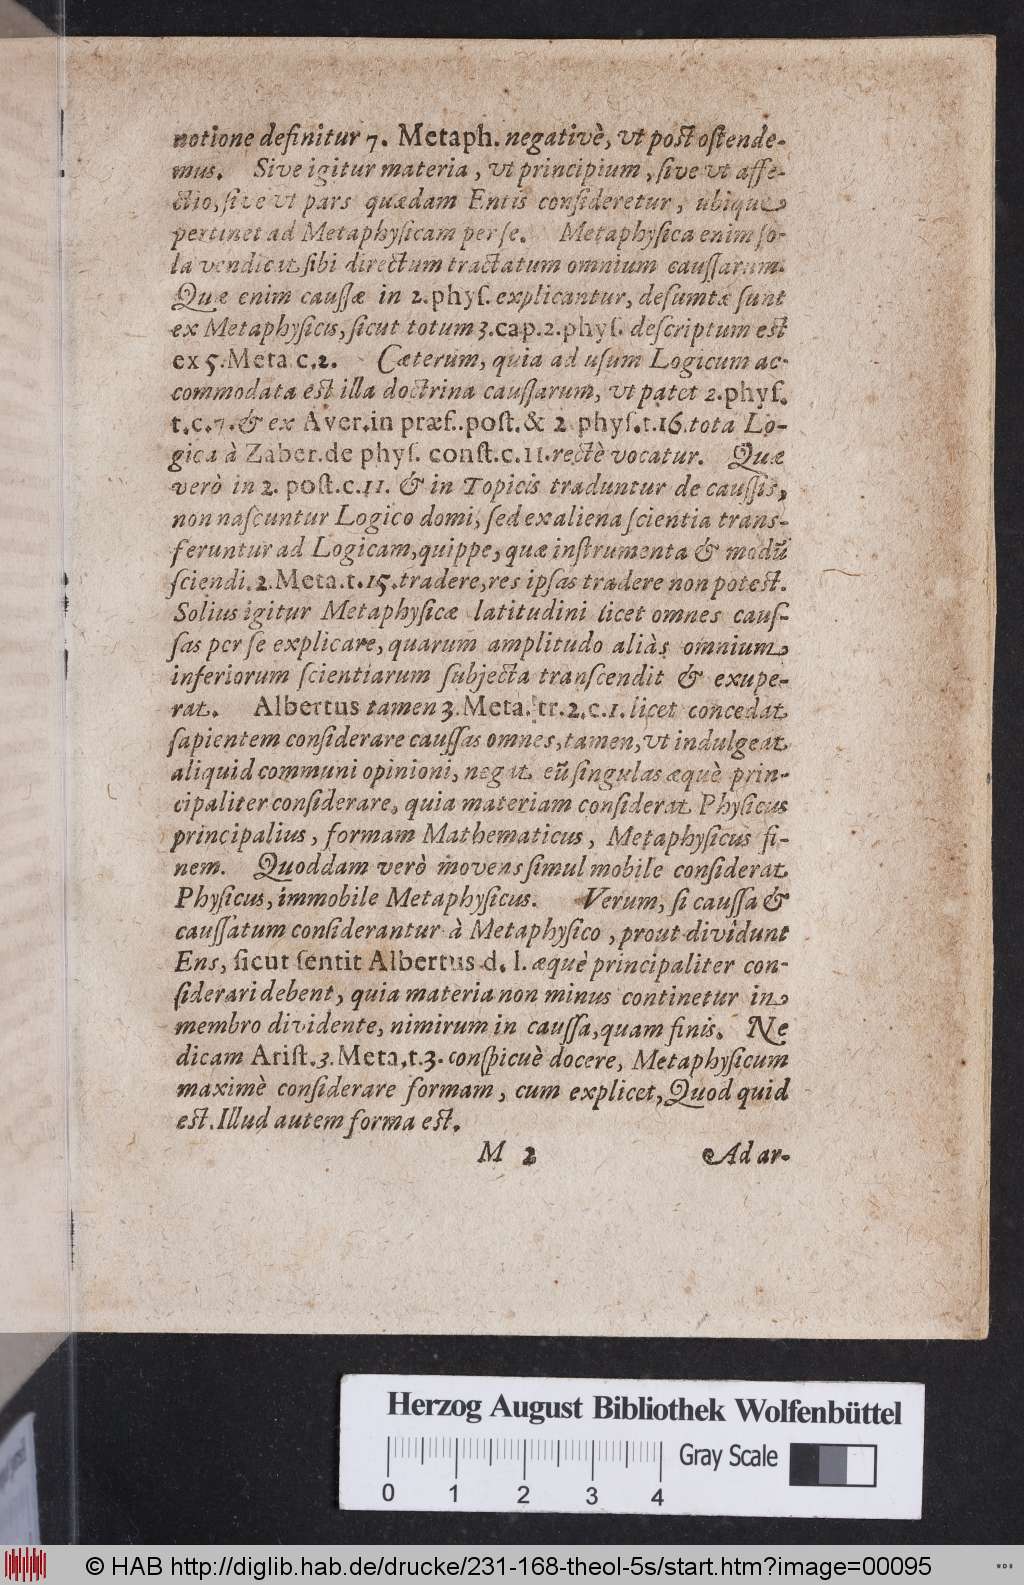 notione definitur 7. Metaph. negativè, vt post ostende-
mus. Sive igitur materia, vt principium, sive vt affe-
ctio, sive vt pars quædam Entis consideretur, ubique
pertinet ad Metaphysicam per se. Metaphysica enim so-
la vendicat sibi directum tractatum omnium caussarum.
Quæ enim caussæ in 2. phys. explicantur, desumtæ sunt
ex Metaphysicis, sicut totum 3. cap. 2. phys. descriptum est
ex 5. Meta. c. 2. Cæterùm, quia ad usum Logicum ac-
commodata est illa doctrina caussarum, vt patet 2. phys.
t. c. 7. & ex Aver. in præf. post. & 2 phys. t. 16. tota Lo-
gica à Zaber. de phys. const. c. 11. rectè vocatur. Quæ
verò in 2. post. c. 11. & in Topicis traduntur de caussis,
non nascuntur Logico domi, sed ex aliena scientia trans-
feruntur ad Logicam, quippe, quæ instrumenta & modū
sciendi. 2. Meta. t. 15. tradere, res ipsas tradere non potest.
Solius igitur Metaphysicæ latitudini licet omnes caus-
sas per se explicare, quarum amplitudo aliàs omnium
inferiorum scientiarum subjecta transcendit & exupe-
rat. Albertus tamen 3. Meta. tr. 2. c. 1. licet concedat
sapientem considerare caussas omnes, tamen, vt indulgeat
aliquid communi opinioni, negat eū singulas æquè prin-
cipaliter considerare, quia materiam considerat Physicus
principalius, formam Mathematicus, Metaphysicus fi-
nem. Quoddam verò movens simul mobile considerat
Physicus, immobile Metaphysicus. Verum, si caussa &
caussatum considerantur à Metaphysico, prout dividunt
Ens, sicut sentit Albertus d. l. æquè principaliter con-
siderari debent, quia materia non minus continetur in
membro dividente, nimirum in caussa, quam finis. Ne
dicam Arist. 3. Meta. t. 3. conspicuè docere, Metaphysicum
maximè considerare formam, cum explicet, Quod quid
est. Illud autem forma est.
M 2 Ad ar-
Herzog August Bibliothek Wolfenbüttel
Gray Scale
0 1 2 3 4
© HAB http://diglib.hab.de/drucke/231-168-theol-5s/start.htm?image=00095